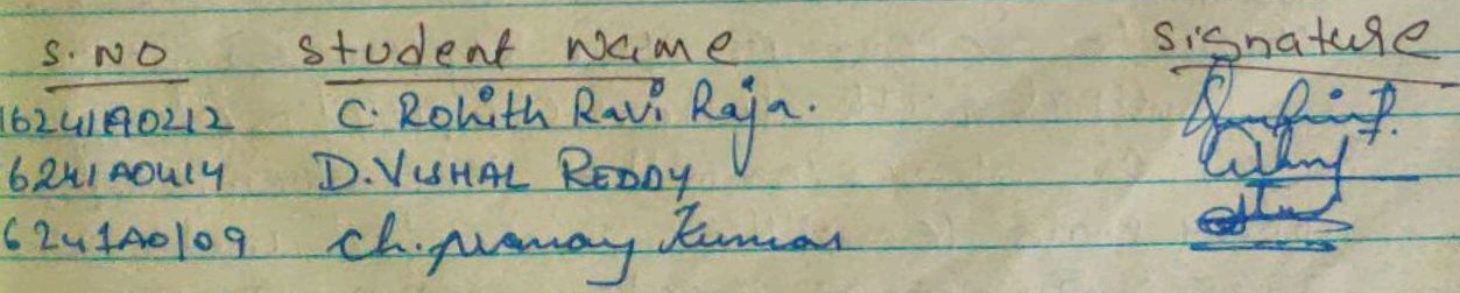 S. NO Student Name Signature
16241A0212 C. Rohith Ravi Raja.
6241A0414 D. VISHAL REDDY
6241A0109 Ch. pranay Kumar